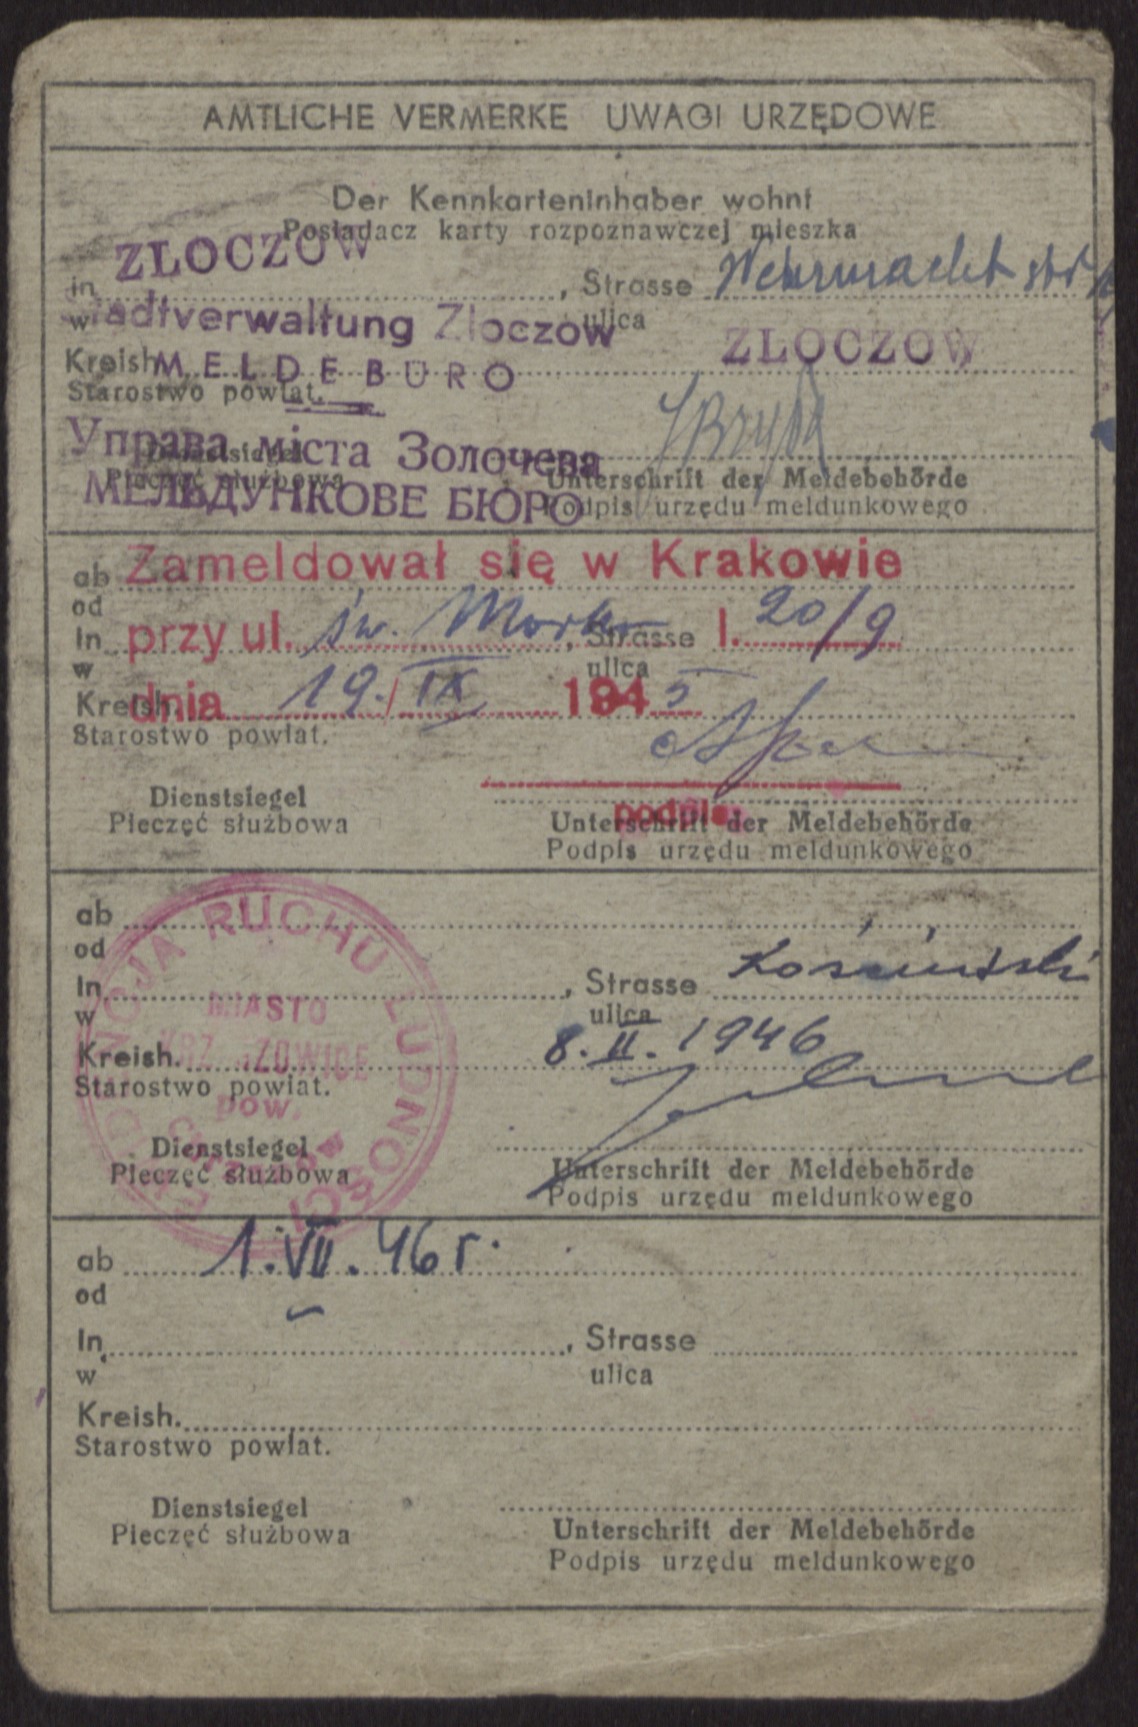 AMTLICHE VERMERKE UWAGI URZĘDOWE
Der Kennkarteninhaber wohnt
Posiadacz karty rozpoznawczej mieszka
ZŁOCZÓW
in , Strasse Wehrmacht str
w ulica
Stadtverwaltung Zloczow
ZŁOCZÓW
Kreish. MELDEBÜRO
Starostwo powiat.
Управа міста Золочева
Dienstsiegel
Pieczęć służbowa Unterschrift der Meldebehörde
МЕЛЬДУНКОВЕ БЮРО Podpis urzędu meldunkowego
ab Zameldował się w Krakowie
od
In przy ul. św. Marka , Strasse l. 20/9
w ulica
Kreish. dnia 19. IX 1945
Starostwo powiat.
Dienstsiegel
Pieczęć służbowa
podpis
Unterschrift der Meldebehörde
Podpis urzędu meldunkowego
ab
od
In , Strasse
w ulica
8. II. 1946
Kreish.
Starostwo powiat.
RUCHU LUDNOŚCI
MIASTO
pow.
Dienstsiegel
Pieczęć służbowa
Unterschrift der Meldebehörde
Podpis urzędu meldunkowego
ab 1. VII. 46 r.
od
In , Strasse
w ulica
Kreish.
Starostwo powiat.
Dienstsiegel
Pieczęć służbowa
Unterschrift der Meldebehörde
Podpis urzędu meldunkowego